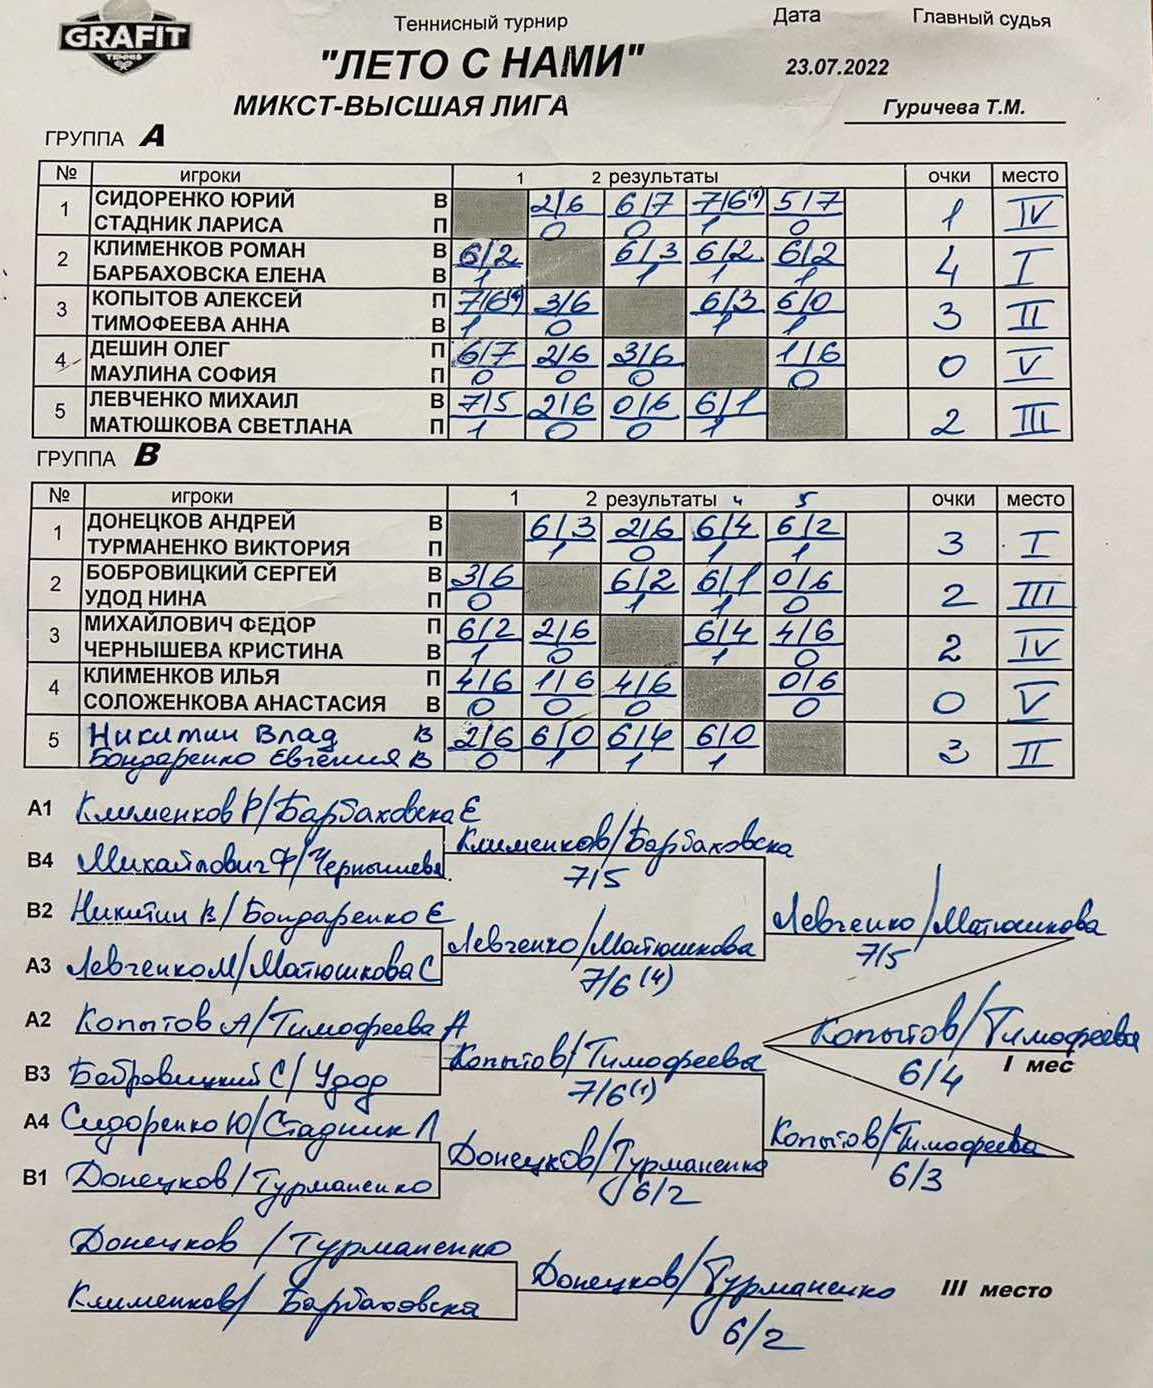 GRAFIT
TENNIS
Теннисный турнир
Дата
Главный судья
"ЛЕТО С НАМИ"
23.07.2022
МИКСТ-ВЫСШАЯ ЛИГА
Гуричева Т.М.
ГРУППА А
№ игроки 1 2 результаты очки место
1 СИДОРЕНКО ЮРИЙ В 2/6 6/7 7/6(1) 5/7 1 IV
СТАДНИК ЛАРИСА П 0 0 1 0
2 КЛИМЕНКОВ РОМАН В 6/2 6/3 6/2 6/2 4 I
БАРБАХОВСКА ЕЛЕНА В 1 1 1 1
3 КОПЫТОВ АЛЕКСЕЙ П 7/6 3/6 6/3 6/0 3 II
ТИМОФЕЕВА АННА В 1 0 1 1
4 ДЕШИН ОЛЕГ П 6/7 2/6 3/6 1/6 0 V
МАУЛИНА СОФИЯ П 0 0 0 0
5 ЛЕВЧЕНКО МИХАИЛ В 7/5 2/6 0/6 6/1 2 III
МАТЮШКОВА СВЕТЛАНА П 1 0 0 1
ГРУППА В
№ игроки 1 2 результаты 4 5 очки место
1 ДОНЕЦКОВ АНДРЕЙ В 6/3 2/6 6/4 6/2 3 I
ТУРМАНЕНКО ВИКТОРИЯ П 1 0 1 1
2 БОБРОВИЦКИЙ СЕРГЕЙ В 3/6 6/2 6/1 0/6 2 III
УДОД НИНА П 0 1 1 0
3 МИХАЙЛОВИЧ ФЕДОР П 6/2 2/6 6/4 4/6 2 IV
ЧЕРНЫШЕВА КРИСТИНА В 1 0 1 0
4 КЛИМЕНКОВ ИЛЬЯ П 4/6 1/6 4/6 0/6 0 V
СОЛОЖЕНКОВА АНАСТАСИЯ В 0 0 0 0
5 Никитин Влад В 2/6 6/0 6/4 6/0 3 II
Бондаренко Евгения В 0 1 1 1
А1 Клименков Р/Барбаховска Е
Клименков/Барбаховска
В4 Михайлович Ф/Чернышева
7/5
В2 Никитин В/Бондаренко Е
Левченко/Матюшкова
Левченко/Матюшкова
7/5
А3 Левченко М/Матюшкова С
7/6(4)
А2 Копытов А/Тимофеева А
Копытов/Тимофеева
I мес
6/4
Копытов/Тимофеева
В3 Бобровицкий С/Удод
7/6(1)
А4 Сидоренко Ю/Стадник Л
Копытов/Тимофеева
Донецков/Турманенко
6/3
В1 Донецков/Турманенко
6/2
Донецков/Турманенко
Донецков/Турманенко III место
Клименков/Барбаховска
6/2